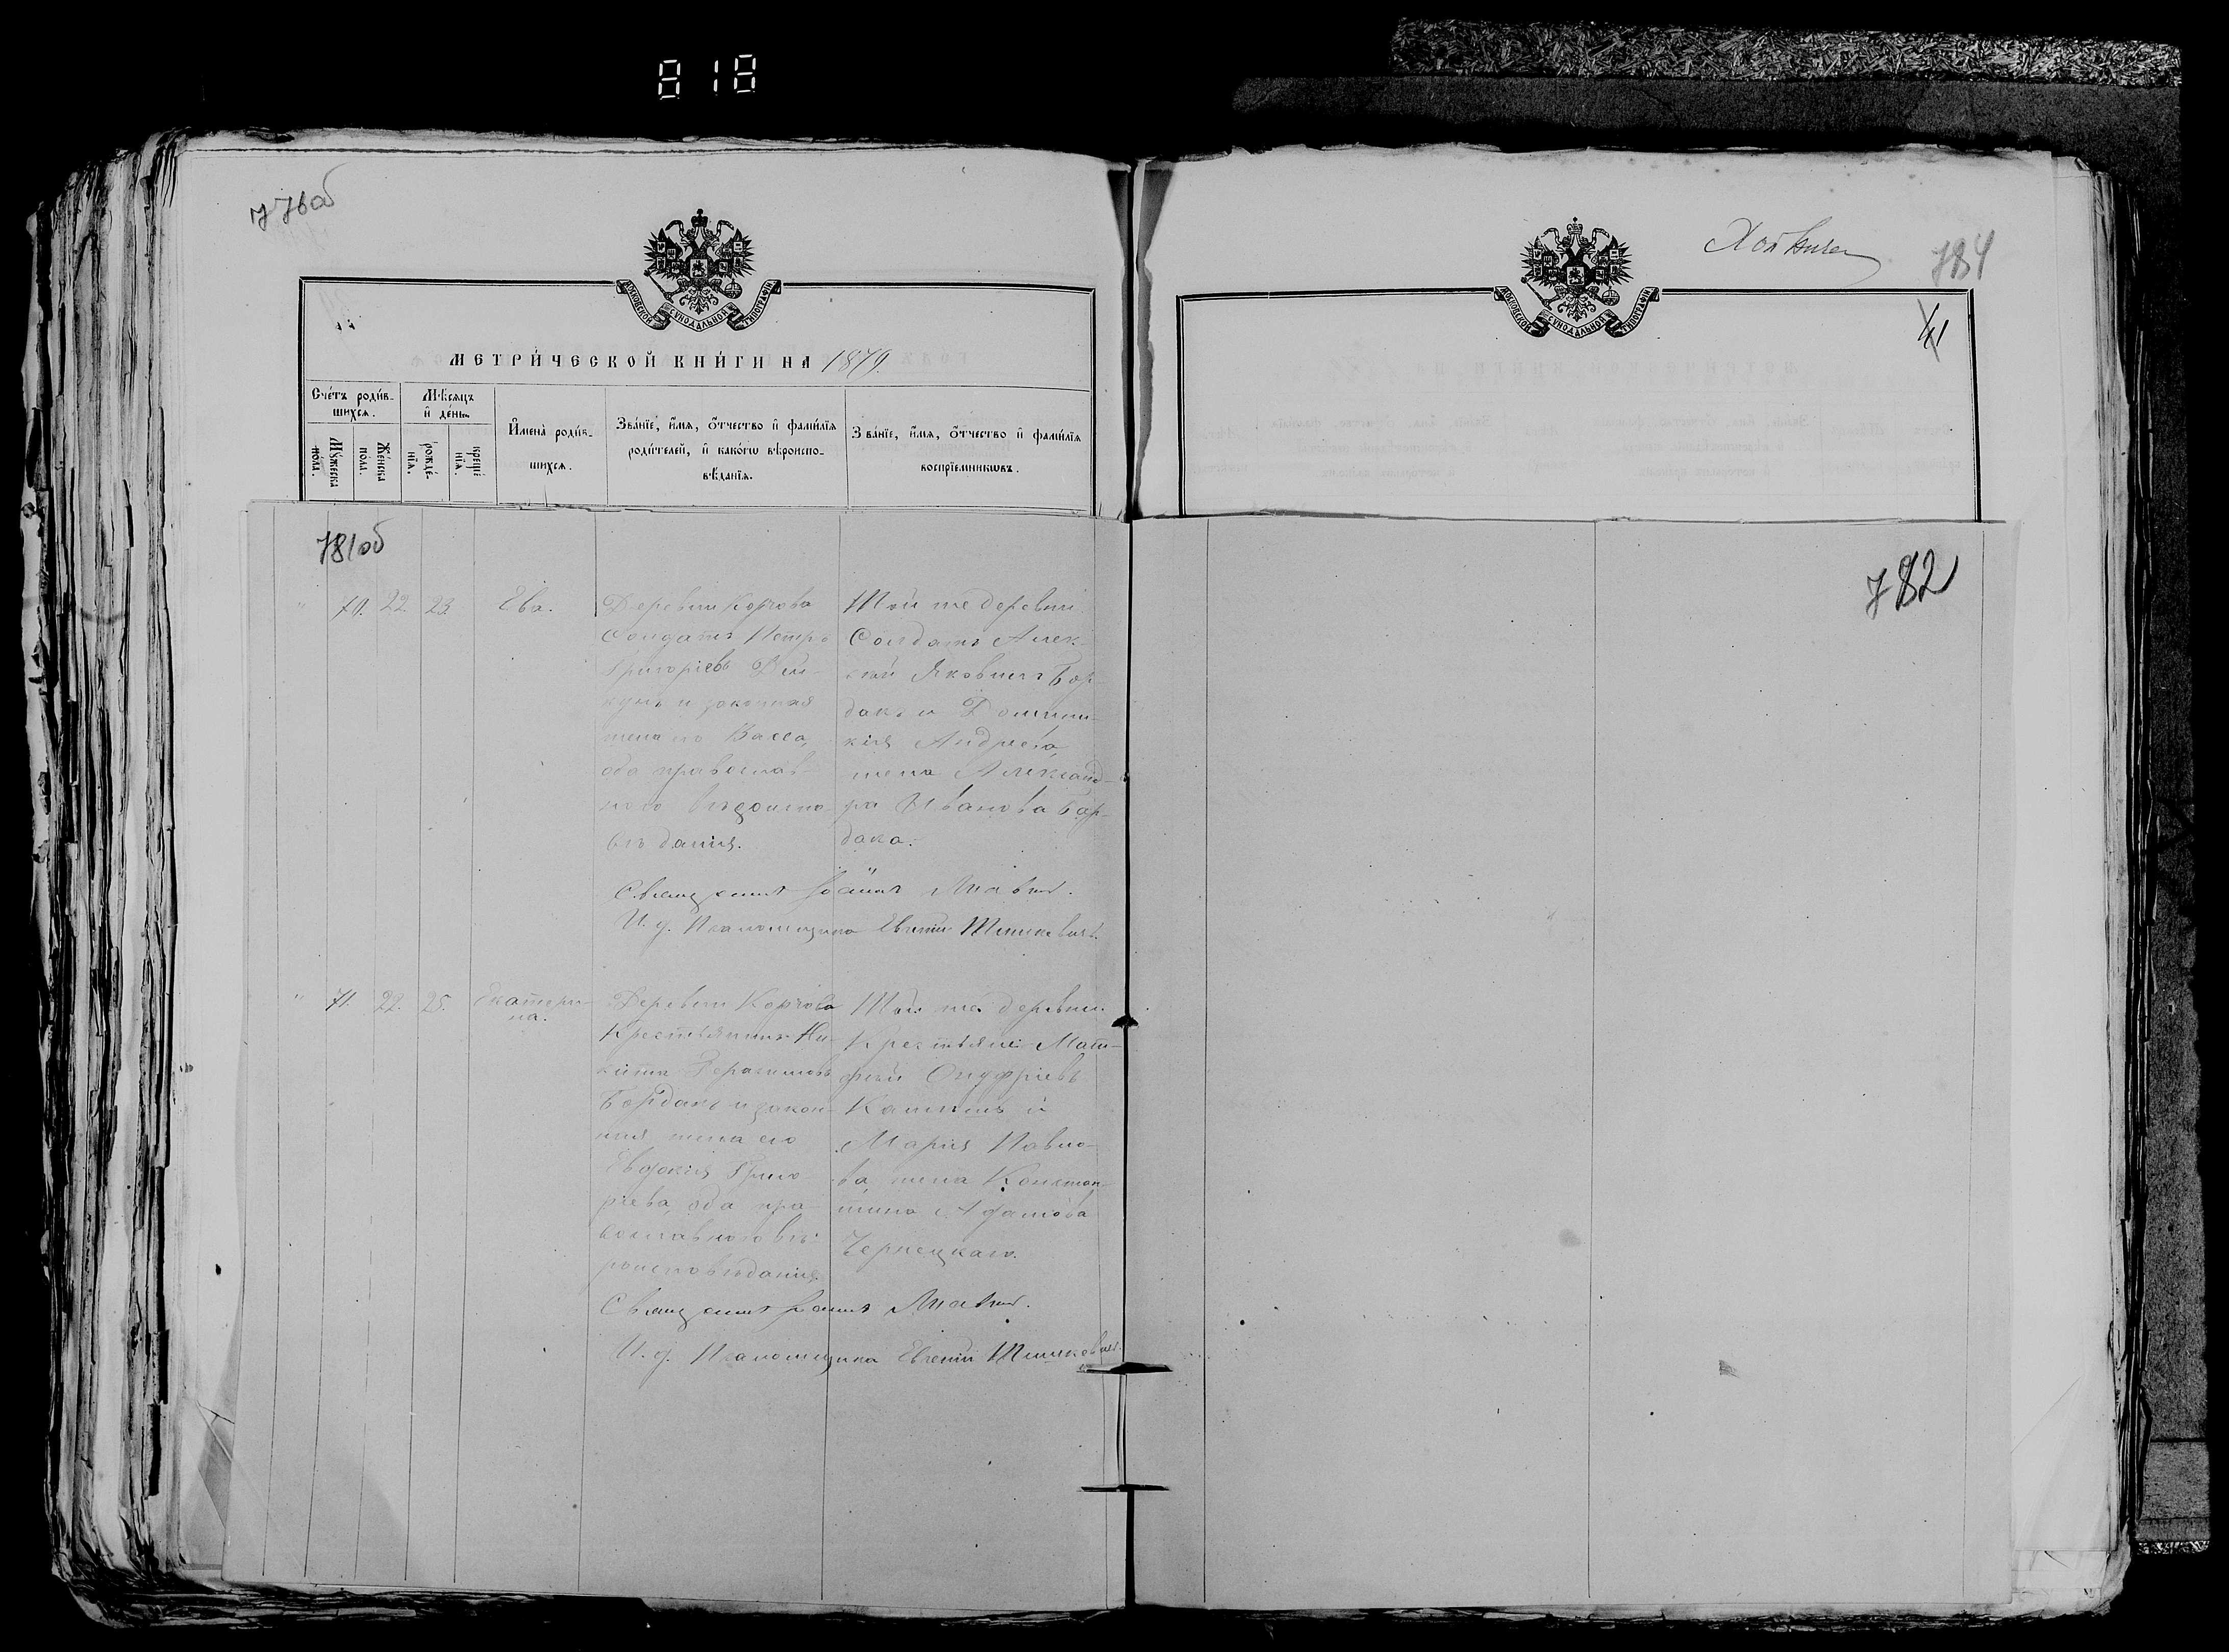 818
776об
МОСКОВСКОЙ СѴНОДАЛЬНОЙ ТИПОГРАФІИ
МЕТРИ́ЧЕСКОЙ КНИ́ГИ НА 1879.
Сче́тъ роди́вшихсѧ.
Мꙋ́жеска по́ла.
Же́нска по́ла.
Мѣ́сѧцъ и҆ де́нь.
рожде́нїѧ.
креще́нїѧ.
И҆мена̀ роди́вшихсѧ.
Зва́нїе, и҆́мѧ, ѻ҆́тчество и҆ фами́лїѧ
роди́телей, и҆ како́гѡ вѣроиспо-
вѣ́данїѧ.
Зва́нїе, и҆́мѧ, ѻ҆́тчество и҆ фами́лїѧ
воспрїе́мникѡвъ.
781об
" 70. 22. 23. Ева.
Деревни Корчова
Солдатъ Петръ
Григоріевъ
и законная
жена его Васса,
оба православ-
наго вѣроиспо-
вѣданія.
Той же деревни
Солдатъ Алек-
сѣй Яковлевъ Бор-
дакъ и Домини-
кія Андреева,
жена Александ-
ра Иванова Бор-
дака.
Священникъ Іоаннъ
И. д. Псаломщика Евгеній
" 71. 22. 25. Екатери-
на.
Деревни Корчова
Крестьянинъ Ни-
кита Герасимовъ
Бордакъ и закон-
ная жена его
Евдокія Григо-
рьева, оба пра-
вославнаго вѣ-
роисповѣданія
Той же деревни
Крестьяне: Мат-
фей Онуфріевъ
и
Марія Павло-
ва, жена Констан-
тина
Чернецкаго.
Священникъ Іоаннъ
И. д. Псаломщика Евгеній
МОСКОВСКОЙ СѴНОДАЛЬНОЙ ТИПОГРАФІИ
784
41
782